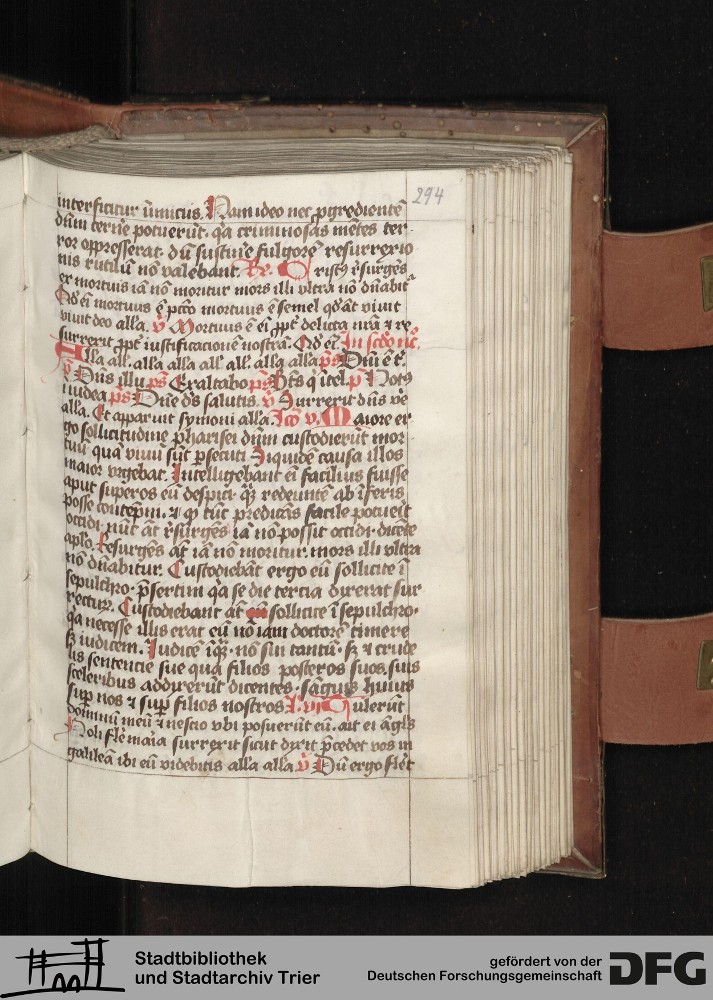 294
interficitur ūnicus. Nam ideo nec ꝓgredientē
dn̄m terre potuerūt. qa criminosas mētes ter-
ror oppresserat. dū sustinē fulgorē resurrexio
nis rutilū nō valebant. Rr. Cristꝰ rͤsurgēs
ex mortuis iā nō moritur mors illi vltra nō dn̄abit᷑
Qd̓ ei mortuus ē pctō mortuus ē semel qd̓ āt vivit
vivit deo all̄a. v̄ Mortuus ē ei ꝓpt̓ delicta nr̄a ⁊ re
surrexit ꝓpt̓ iustificacionē nostrā. Qd̓ ei. In scd̓o nc̄.
All̄a all̄. all̄a all̄a all̄. all̄. all̄a all̄a ps
p̄ Dn̄s illu ps Exaltabo ps
iudea ps Dn̄e dš salutis. v̄ Surrexit dn̄s ve
all̄a. Et apparuit symoni all̄a. Lcō v. Maiore er
go sollicitudine pharisei dn̄m custodierūt mor
tuū quā vivū sūt ꝑsecuti. Siquidē causa illos
maior vrgebat. Intelligebant ei facilius fuisse
aput superos eū despici. qꝫ redeuntē ab īferis
posse contēpni. ⁊ qꝫ tūc predicās facile potueīt
occidi. nūc āt rͤsurgēs iā nō possit occidi. dicēte
aplo. Resurgēs āt iā nō moritur. mors illi vltra
nō dn̄abitur. Custodiebāt ergo eū sollicite ī
sepulchro. p̄sertim qa se die tercia dixerat sur
rectur̄. Custodiebant āt sollicite ī sepulchro.
qa necesse illis erat eū nō iam doctorē timere
sꝫ iudicem. Iudicē īqꝫ. nō sui tantū. sꝫ ⁊ crude
lis sentencie sue qua filios posteros suos. suis
sceleribus addixerūt dicentes. sāguis huius
suꝑ nos ⁊ suꝑ filios nostros. L. vi. Tulerūt
dominū meū ⁊ nescio vbi posuerūt eū. ait ei āgl̄s
Noli flē maīa surrexit sicut dixit p̄cedet vos in
galileā ibi eū videbitis all̄a all̄a. v̄ Dū ergo flēt
Stadtbibliothek
und Stadtarchiv Trier
gefördert von der
Deutschen Forschungsgemeinschaft
DFG